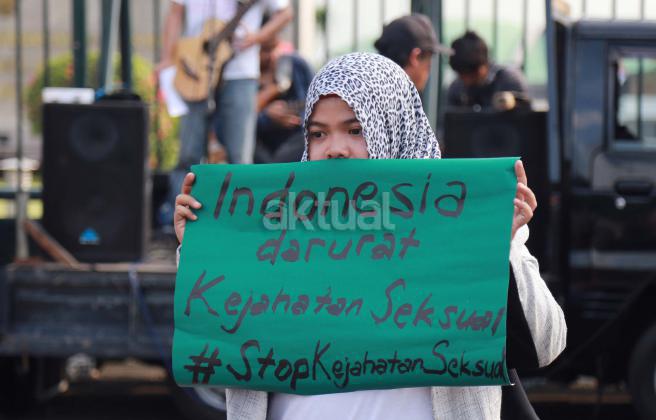 Indonesia
darurat
Kejahatan Seksual
#StopKejahatanSeksual
aktual